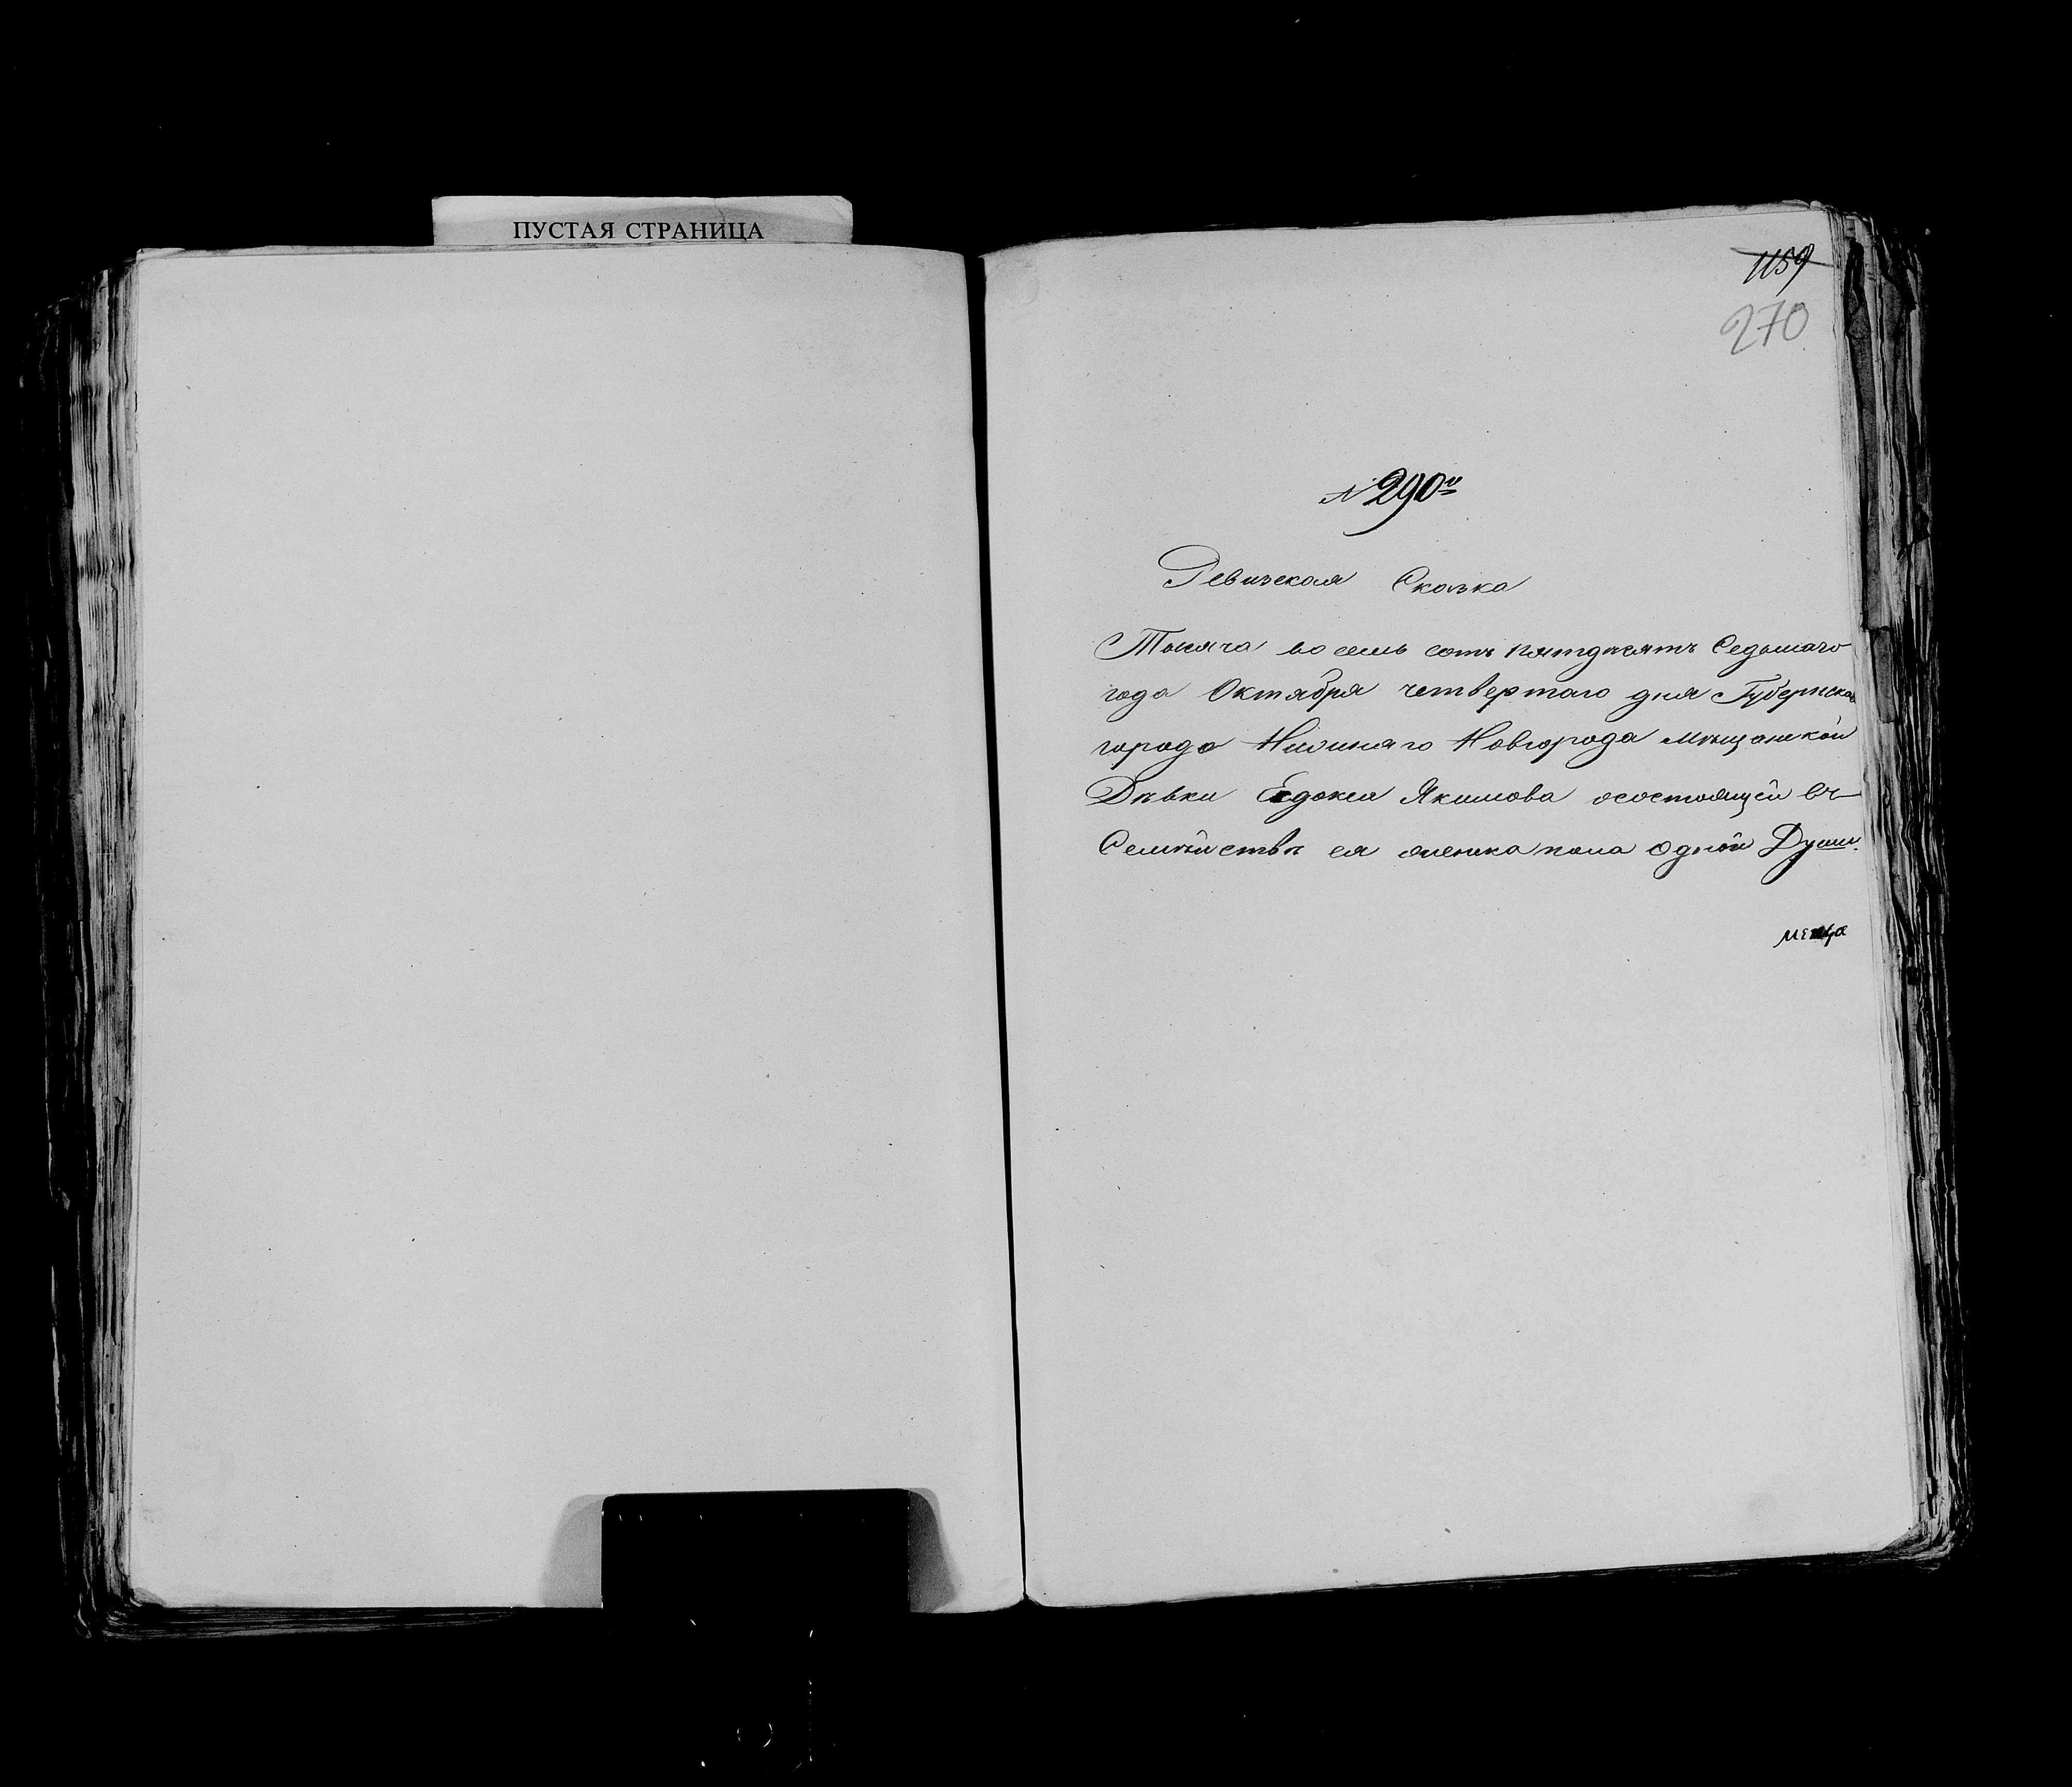 ПУСТАЯ СТРАНИЦА
1159
270
№ 290й
Ревизская Сказка
Тысяча восемь сотъ пятдесятъ Седьмаго
года Октября четвертаго дня Губернска
города Нижняго Новгорода мѣщанской
Дѣвки Едокеи Якимова осостоящей въ
Семѣйствѣ ея женска пола одной Души.